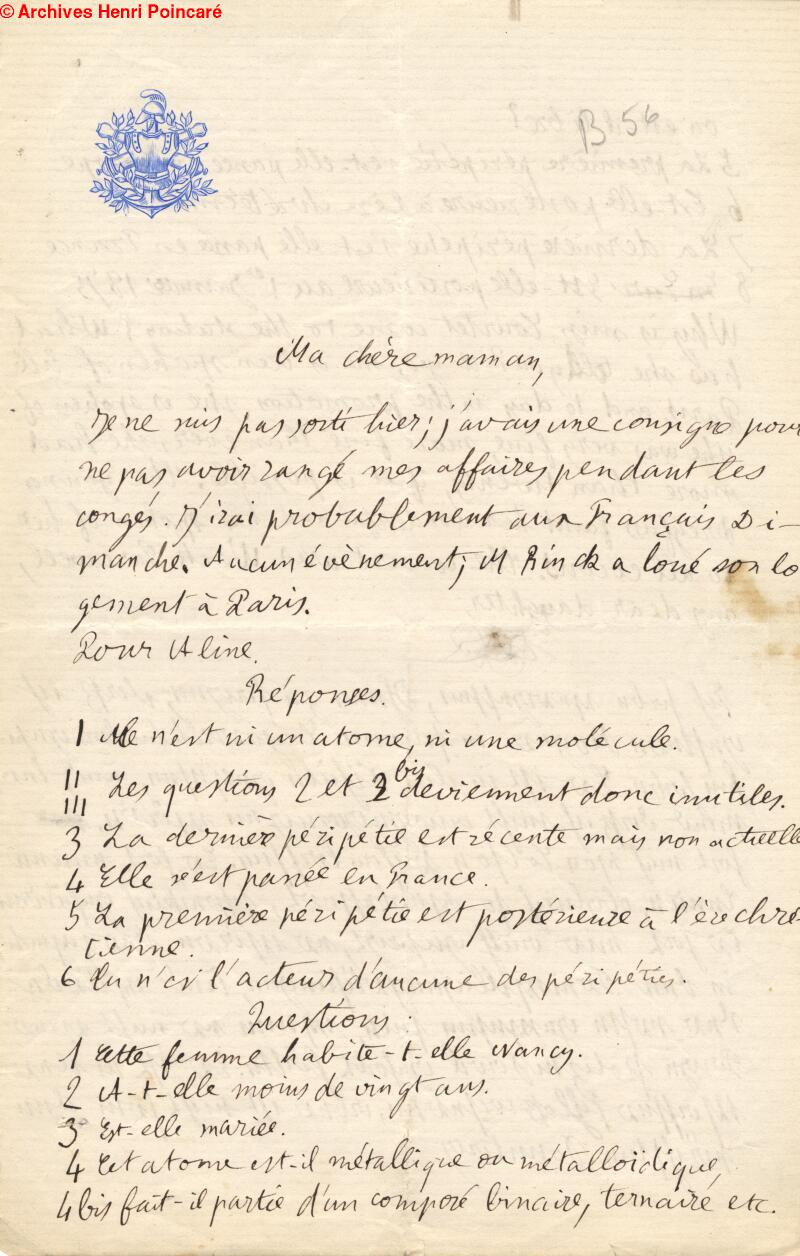 © Archives Henri Poincaré
B 56
Ma chère maman,
Je ne suis pas sorti hier; j'avais une consigne pour
ne pas avoir rangé mes affaires pendant les
congés. J'irai probablement aux Français Di-
manche. Aucun évènement; M Rinck a loué son lo
gement à Paris.
Pour Aline.
Réponses.
1 Me n'est ni un atome, ni une molécule.
II Les questions 2 et 2 bis deviennent donc inutiles.
III
3 La dernière péripétie est récente mais non actuelle
4 Elle s'est passée en France.
5 La première péripétie est postérieure à l'ère chré-
tienne.
6 Tu n'es l'acteur d'aucune des péripéties.
Questions:
1 Cette femme habite-t-elle Nancy.
2 A-t-elle moins de vingt ans.
3 Est-elle mariée.
4 Cet atome est-il métallique ou métalloïdique,
4 bis fait-il partie d'un composé binaire, ternaire etc.